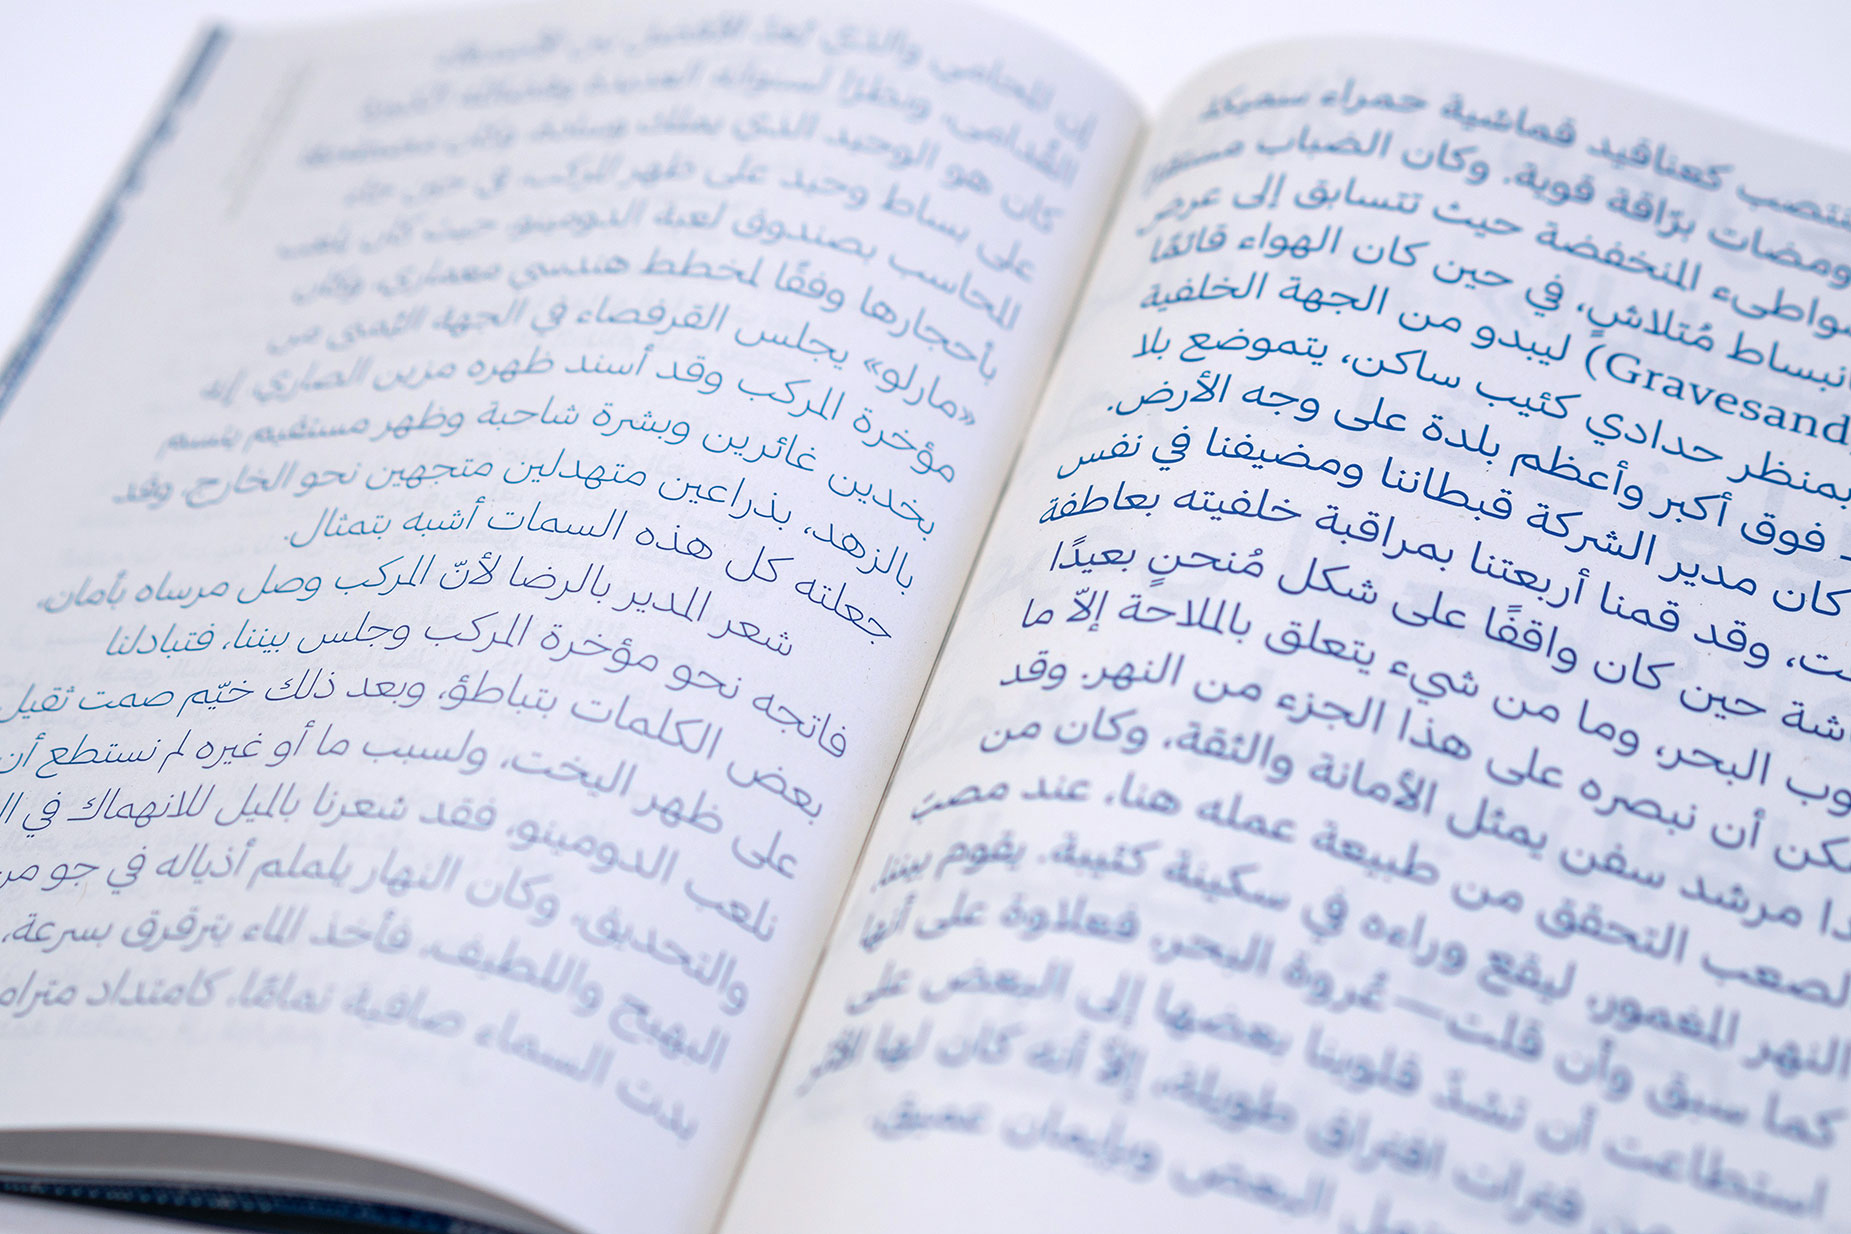 تنتصب كعناقيد قماشية حمراء سميكة
ومضات برّاقة قوية. وكان الضباب
المنخفضة حيث تتسابق إلى عرض
انبساط مُتلاشٍ، في حين كان الهواء قائمًا
(Gravesand ليبدو من الجهة الخلفية
بمنظر حدادي كئيب ساكن، يتموضع بلا
فوق أكبر وأعظم بلدة على وجه الأرض.
كان مدير الشركة قبطاننا ومضيفنا في نفس
وقد قمنا أربعتنا بمراقبة خلفيته بعاطفة
حين كان واقفًا على شكل مُنحنٍ بعيدًا
البحر، وما من شيء يتعلق بالملاحة إلاّ ما
أن نبصره على هذا الجزء من النهر. وقد
مرشد سفن يمثل الأمانة والثقة، وكان من
الصعب التحقق من طبيعة عمله هنا، عند مصبّ
النهر المغمور، ليقع وراءه في سكينة كئيبة. يقوم بيننا،
كما سبق وأن قلت—عُروة البحر، فعلاوة على أنها
استطاعت أن تشدّ قلوبنا بعضها إلى البعض على
فترات افتراق طويلة، إلاّ أنه كان لها
البعض وبإيمان عميق،
إن المحامي والذي يُعدّ الأفضل بين
القُدامى، ونظرًا لسنواته العديدة وفضائله
كان هو الوحيد الذي يملك وسادة، وكان
على بساط وحيد على ظهر المركب، في حين جاء
المحاسب بصندوق لعبة الدومينو، حيث كان يلعب
بأحجارها وفقًا لمخطط هندسي معماري، وكان
«مارلو» يجلس القرفصاء في الجهة اليُمنى من
مؤخرة المركب وقد أسند ظهره مزين الصاري، إنه
بخدين غائرين وبشرة شاحبة وظهر مستقيم يتسم
بالزهد، بذراعين متهدلين متجهين نحو الخارج، وقد
جعلته كل هذه السمات أشبه بتمثال.
شعر المدير بالرضا لأنّ المركب وصل مرساه بأمان،
فاتجه نحو مؤخرة المركب وجلس بيننا، فتبادلنا
بعض الكلمات بتباطؤ، وبعد ذلك خيّم صمت ثقيل
على ظهر اليخت، ولسبب ما أو غيره لم نستطع أن
نلعب الدومينو، فقد شعرنا بالميل للانهماك في
والتحديق، وكان النهار يلملم أذياله في جو
البهيج واللطيف، فأخذ الماء يترقرق بسرعة،
بدت السماء صافية تمامًا، كامتداد